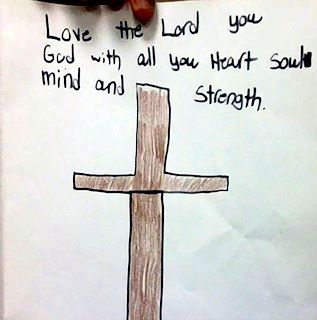 Love the Lord you
God with all you Heart Soul
mind and Strength.